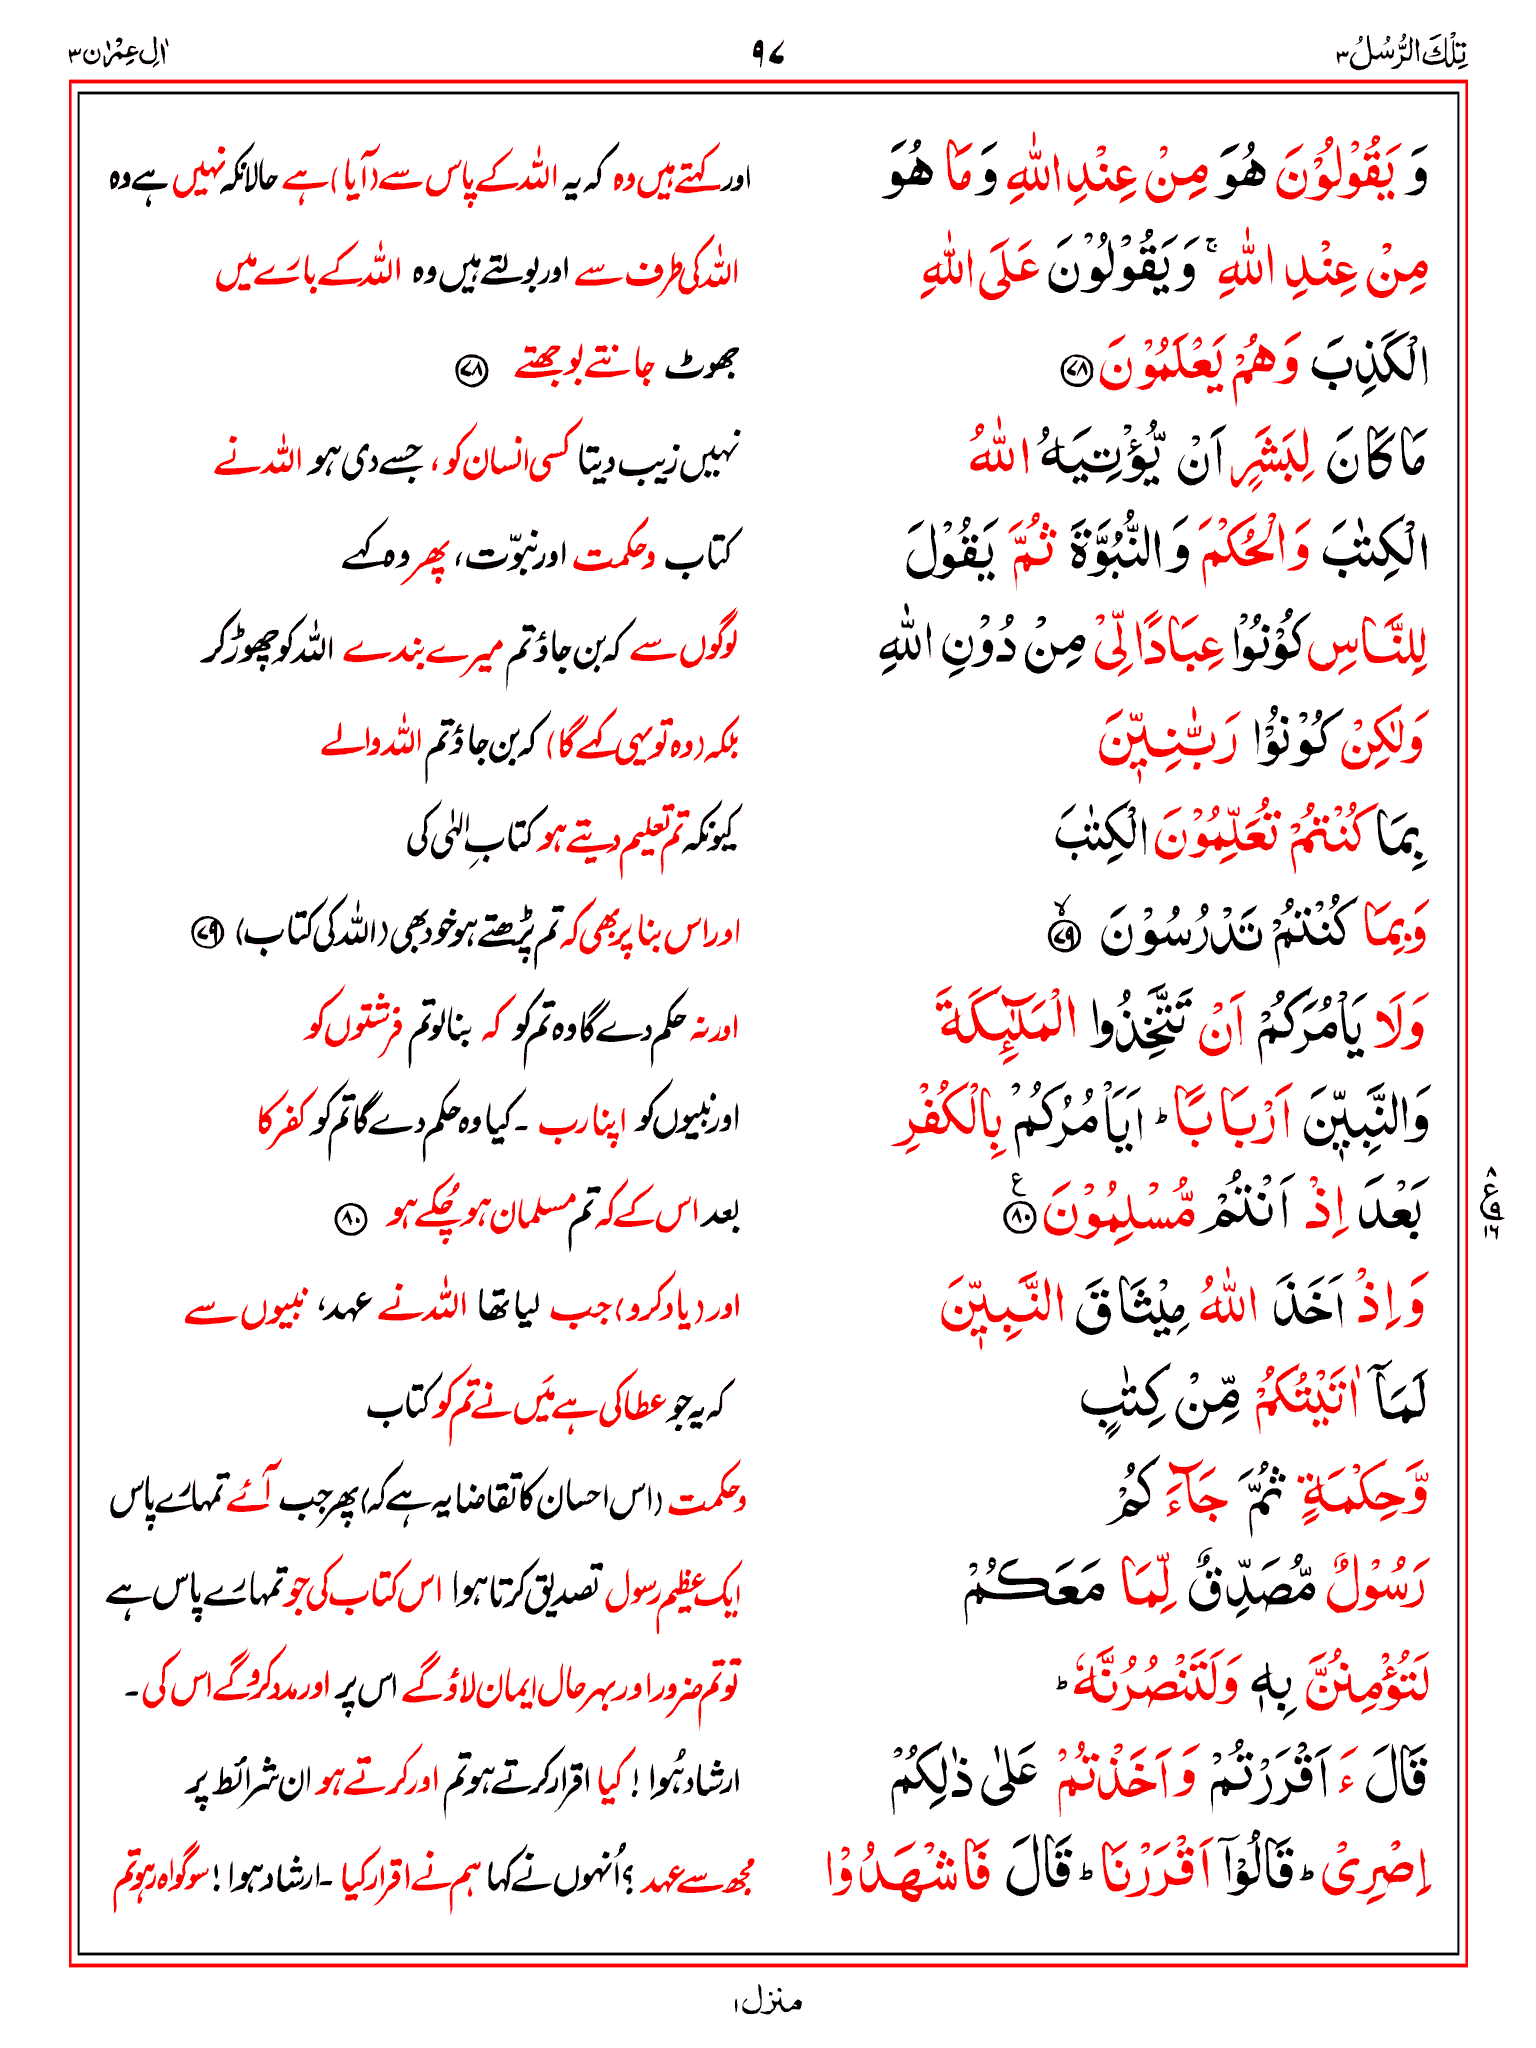 تِلْكَ الرُّسُلُ ٣
٩٧
اٰلِ عِمْرٰن ٣
وَ يَقُوْلُوْنَ هُوَ مِنْ عِنْدِ اللّٰهِ وَ مَا هُوَ
اور کہتے ہیں وہ کہ یہ اللہ کے پاس سے (آیا) ہے حالانکہ نہیں ہے وہ
مِنْ عِنْدِ اللّٰهِ ۚ وَ يَقُوْلُوْنَ عَلَى اللّٰهِ
اللہ کی طرف سے اور بولتے ہیں وہ اللہ کے بارے میں
الْكَذِبَ وَ هُمْ يَعْلَمُوْنَ ﴿٧٨﴾
جھوٹ جانتے بوجھتے ﴿٧٨﴾
مَا كَانَ لِبَشَرٍ اَنْ يُّؤْتِيَهُ اللّٰهُ
نہیں زیب دیتا کسی انسان کو، جسے دی ہو اللہ نے
الْكِتٰبَ وَ الْحُكْمَ وَ النُّبُوَّةَ ثُمَّ يَقُوْلَ
کتاب و حکمت اور نبوّت، پھر وہ کہے
لِلنَّاسِ كُوْنُوْا عِبَادًا لِّيْ مِنْ دُوْنِ اللّٰهِ
لوگوں سے کہ بن جاؤ تم میرے بندے اللہ کو چھوڑ کر
وَ لٰكِنْ كُوْنُوْا رَبّٰنِيّٖنَ
بلکہ (وہ تو یہی کہے گا) کہ بن جاؤ تم اللہ والے
بِمَا كُنْتُمْ تُعَلِّمُوْنَ الْكِتٰبَ
کیونکہ تم تعلیم دیتے ہو کتابِ الٰہی کی
وَ بِمَا كُنْتُمْ تَدْرُسُوْنَ ﴿٧٩﴾ۙ
اور اس بنا پر بھی کہ تم پڑھتے ہو خود بھی (اللہ کی کتاب) ﴿٧٩﴾
وَ لَا يَاْمُرَكُمْ اَنْ تَتَّخِذُوا الْمَلٰٓئِكَةَ
اور نہ حکم دے گا وہ تم کو کہ بنا لو تم فرشتوں کو
وَ النَّبِيّٖنَ اَرْبَابًا ؕ اَيَاْمُرُكُمْ بِالْكُفْرِ
اور نبیوں کو اپنا رب ۔ کیا وہ حکم دے گا تم کو کفر کا
بَعْدَ اِذْ اَنْتُمْ مُّسْلِمُوْنَ ﴿٨٠﴾ع
بعد اس کے کہ تم مسلمان ہو چُکے ہو ﴿٨٠﴾
٨
ع
٩
١٦
وَ اِذْ اَخَذَ اللّٰهُ مِيْثَاقَ النَّبِيّٖنَ
اور (یاد کرو) جب لیا تھا اللہ نے عہد، نبیوں سے
لَمَاۤ اٰتَيْتُكُمْ مِّنْ كِتٰبٍ
کہ یہ جو عطا کی ہے مَیں نے تم کو کتاب
وَّ حِكْمَةٍ ثُمَّ جَآءَ كُمْ
و حکمت (اس احسان کا تقاضا یہ ہے کہ) پھر جب آئے تمہارے پاس
رَسُوْلٌ مُّصَدِّقٌ لِّمَا مَعَكُمْ
ایک عظیم رسول تصدیق کرتا ہوا اس کتاب کی جو تمہارے پاس ہے
لَتُؤْمِنُنَّ بِهٖ وَ لَتَنْصُرُنَّهٗ ؕ
تو تم ضرور اور بہر حال ایمان لاؤ گے اس پر اور مدد کرو گے اس کی ۔
قَالَ ءَ اَقْرَرْتُمْ وَ اَخَذْتُمْ عَلٰى ذٰلِكُمْ
ارشاد ہُوا ! کیا اقرار کرتے ہو تم اور کرتے ہو ان شرائط پر
اِصْرِيْ ؕ قَالُوْۤا اَقْرَرْنَا ؕ قَالَ فَاشْهَدُوْا
مجھ سے عہد ؟ اُنہوں نے کہا ہم نے اقرار کیا ۔ ارشاد ہوا ! سو گواہ رہو تم
منزل ١